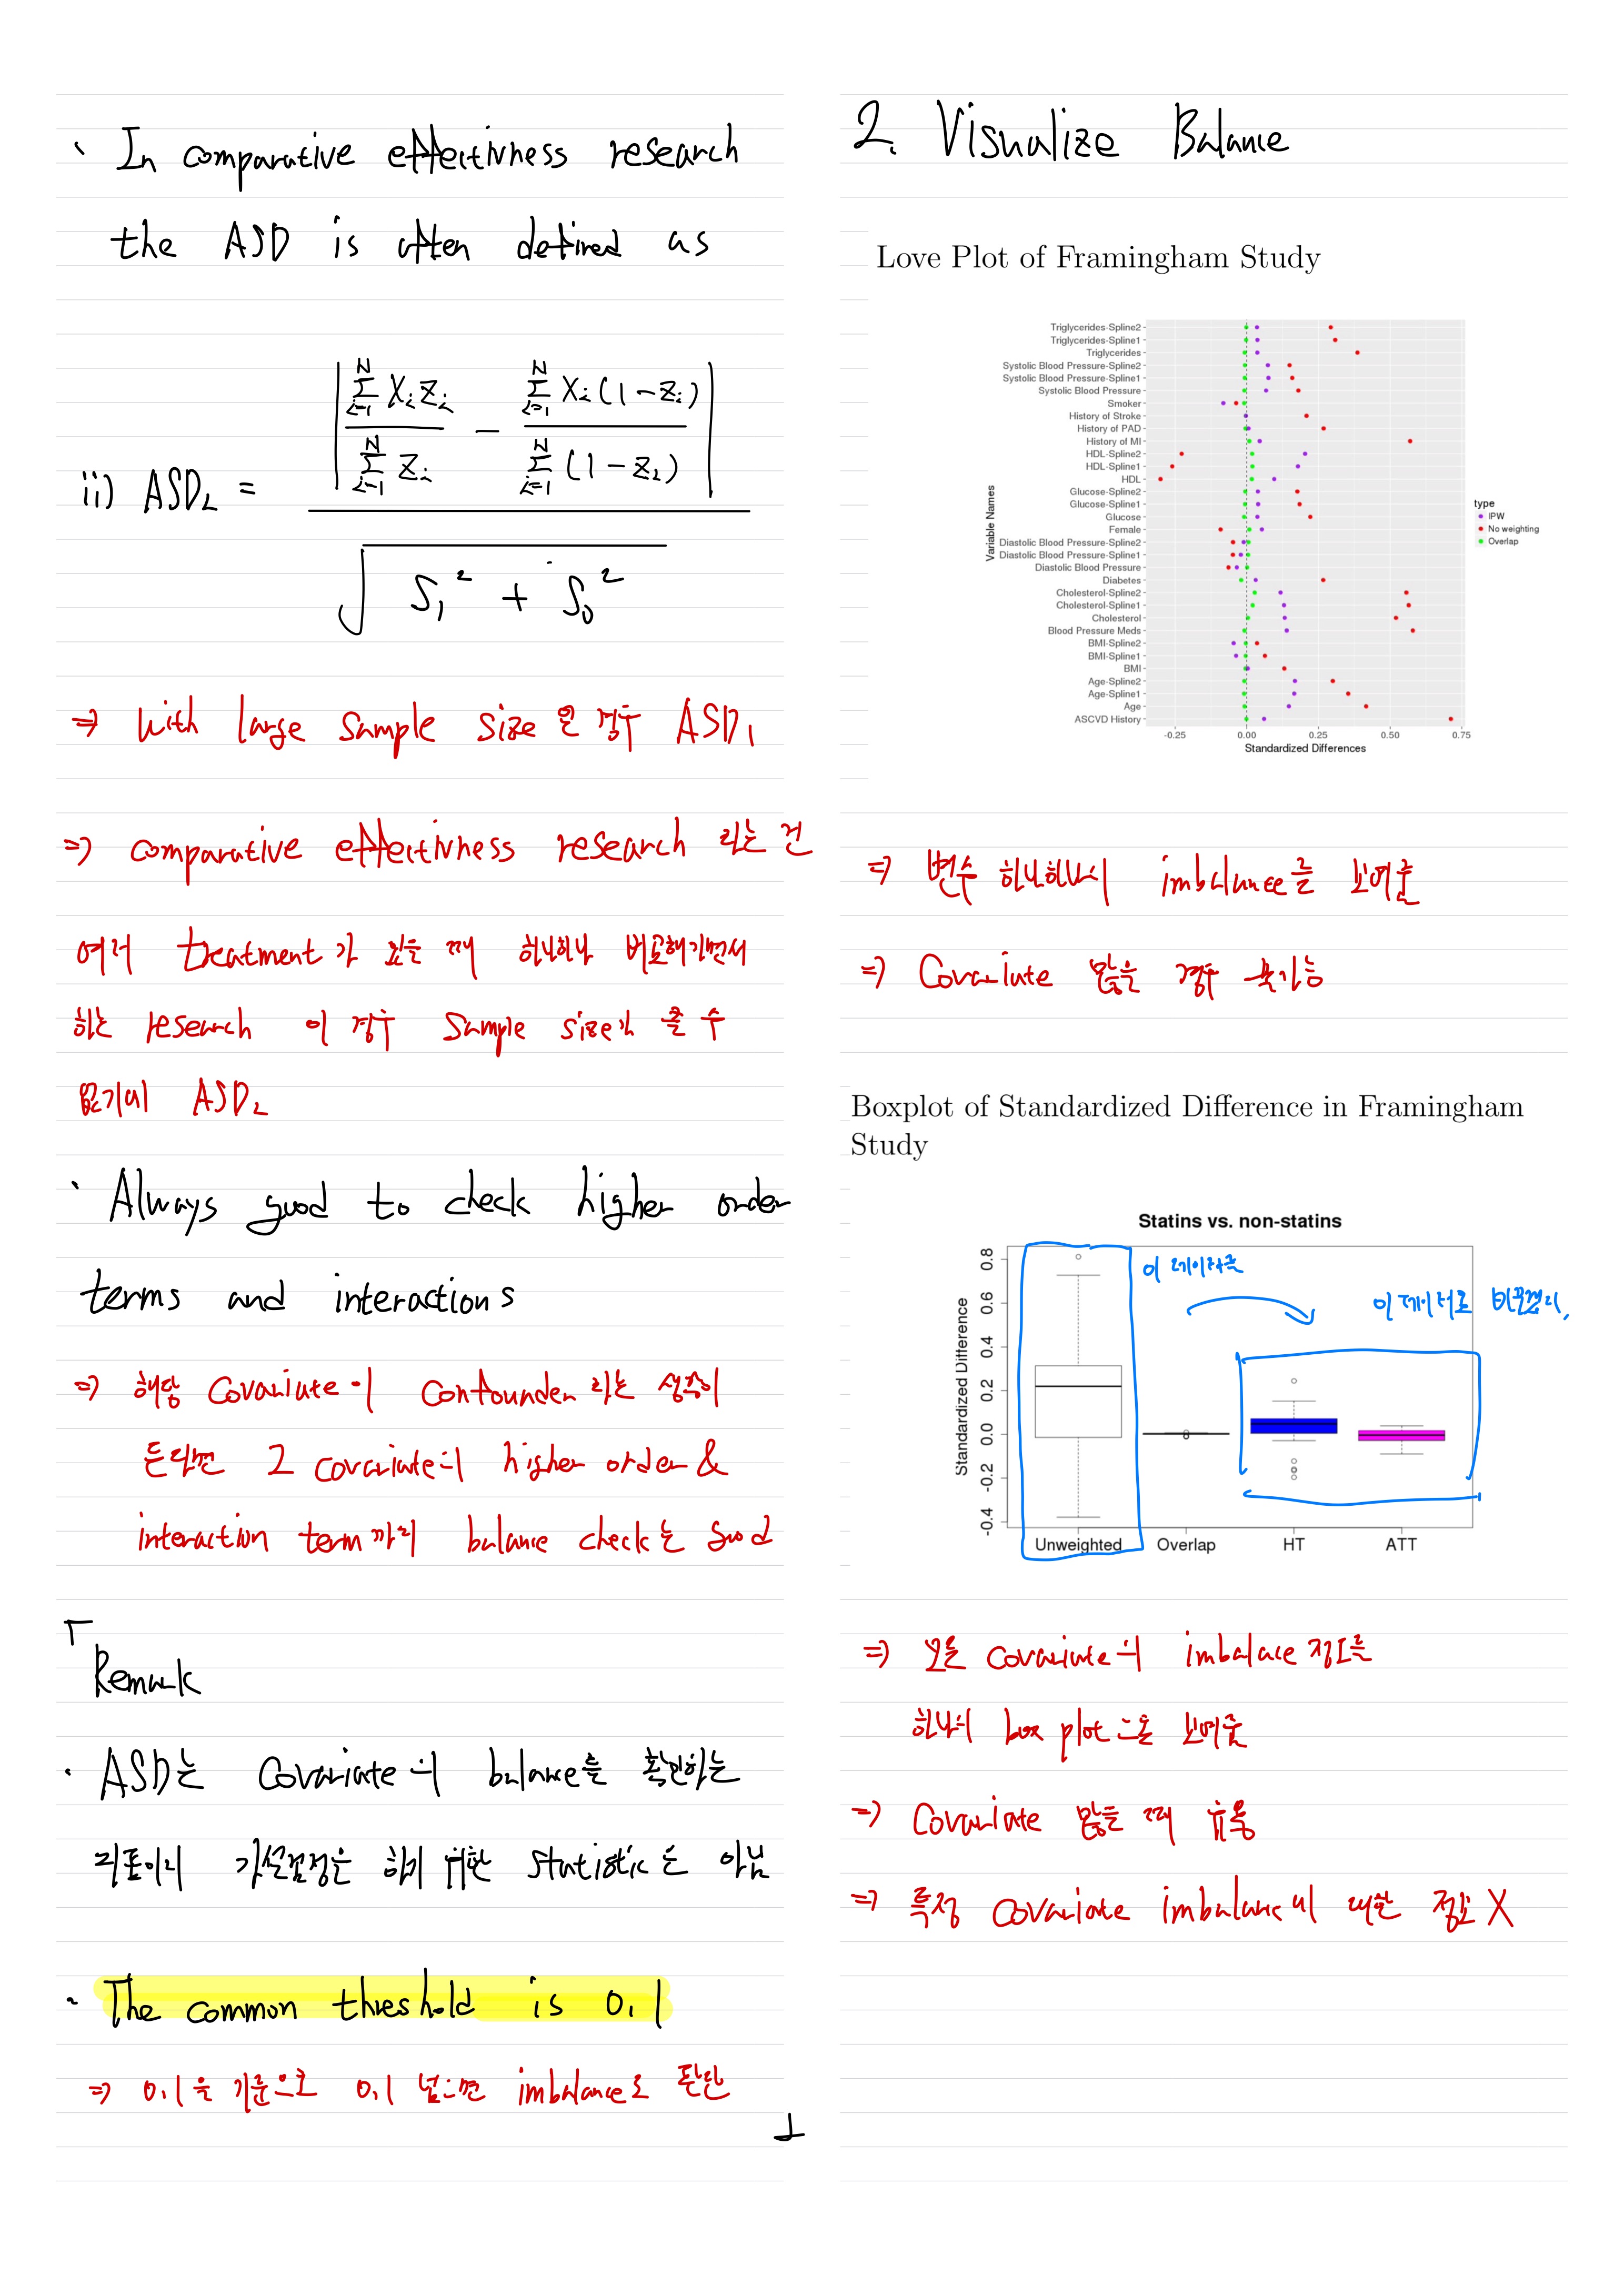 · In comparative effectivness research
the ASD is often defined as
ii) ASD₂ = | Σ_{i=1}^{N} X_i Z_i / Σ_{i=1}^{N} Z_i − Σ_{i=1}^{N} X_i (1−Z_i) / Σ_{i=1}^{N} (1−Z_i) | / √ S₁² + S₀²
⇒ With large sample size 인 경우 ASD₁
⇒ comparative effectivness research 라는 건
여러 treatment가 있을 때 하나하나 비교해가면서
하는 research 이 경우 Sample size가 클 수
없기에 ASD₂
· Always good to check higher order
terms and interactions
⇒ 해당 Covariate이 Confounder 라는 생각이
든다면 그 covariate의 higher order &
interaction term까지 balance check는 good
Remark
· ASD는 Covariate의 balance를 확인하는
지표이지 가설검정을 하기 위한 statistic은 아님
· The common threshold is 0.1
⇒ 0.1을 기준으로 0.1 넘으면 imbalance로 판단
2. Visualize Balance
Love Plot of Framingham Study
Variable Names
Triglycerides-Spline2
Triglycerides-Spline1
Triglycerides
Systolic Blood Pressure-Spline2
Systolic Blood Pressure-Spline1
Systolic Blood Pressure
Smoker
History of Stroke
History of PAD
History of MI
HDL-Spline2
HDL-Spline1
HDL
Glucose-Spline2
Glucose-Spline1
Glucose
Female
Diastolic Blood Pressure-Spline2
Diastolic Blood Pressure-Spline1
Diastolic Blood Pressure
Diabetes
Cholesterol-Spline2
Cholesterol-Spline1
Cholesterol
Blood Pressure Meds
BMI-Spline2
BMI-Spline1
BMI
Age-Spline2
Age-Spline1
Age
ASCVD History
-0.25 0.00 0.25 0.50 0.75
Standardized Differences
type
IPW
No weighting
Overlap
⇒ 변수 하나하나씩 imbalance를 보여줌
⇒ Covariate 많을 경우 불가능
Boxplot of Standardized Difference in Framingham
Study
Statins vs. non-statins
이 데이터를
이 데이터로 바꾼겠지,
Standardized Difference
0.8
0.6
0.4
0.2
0.0
-0.2
-0.4
Unweighted Overlap HT ATT
⇒ 모든 covariate의 imbalace 정도를
하나의 box plot으로 보여줌
⇒ Covariate 많을 때 유용
⇒ 특정 Covariate imbalance에 대한 정보 X